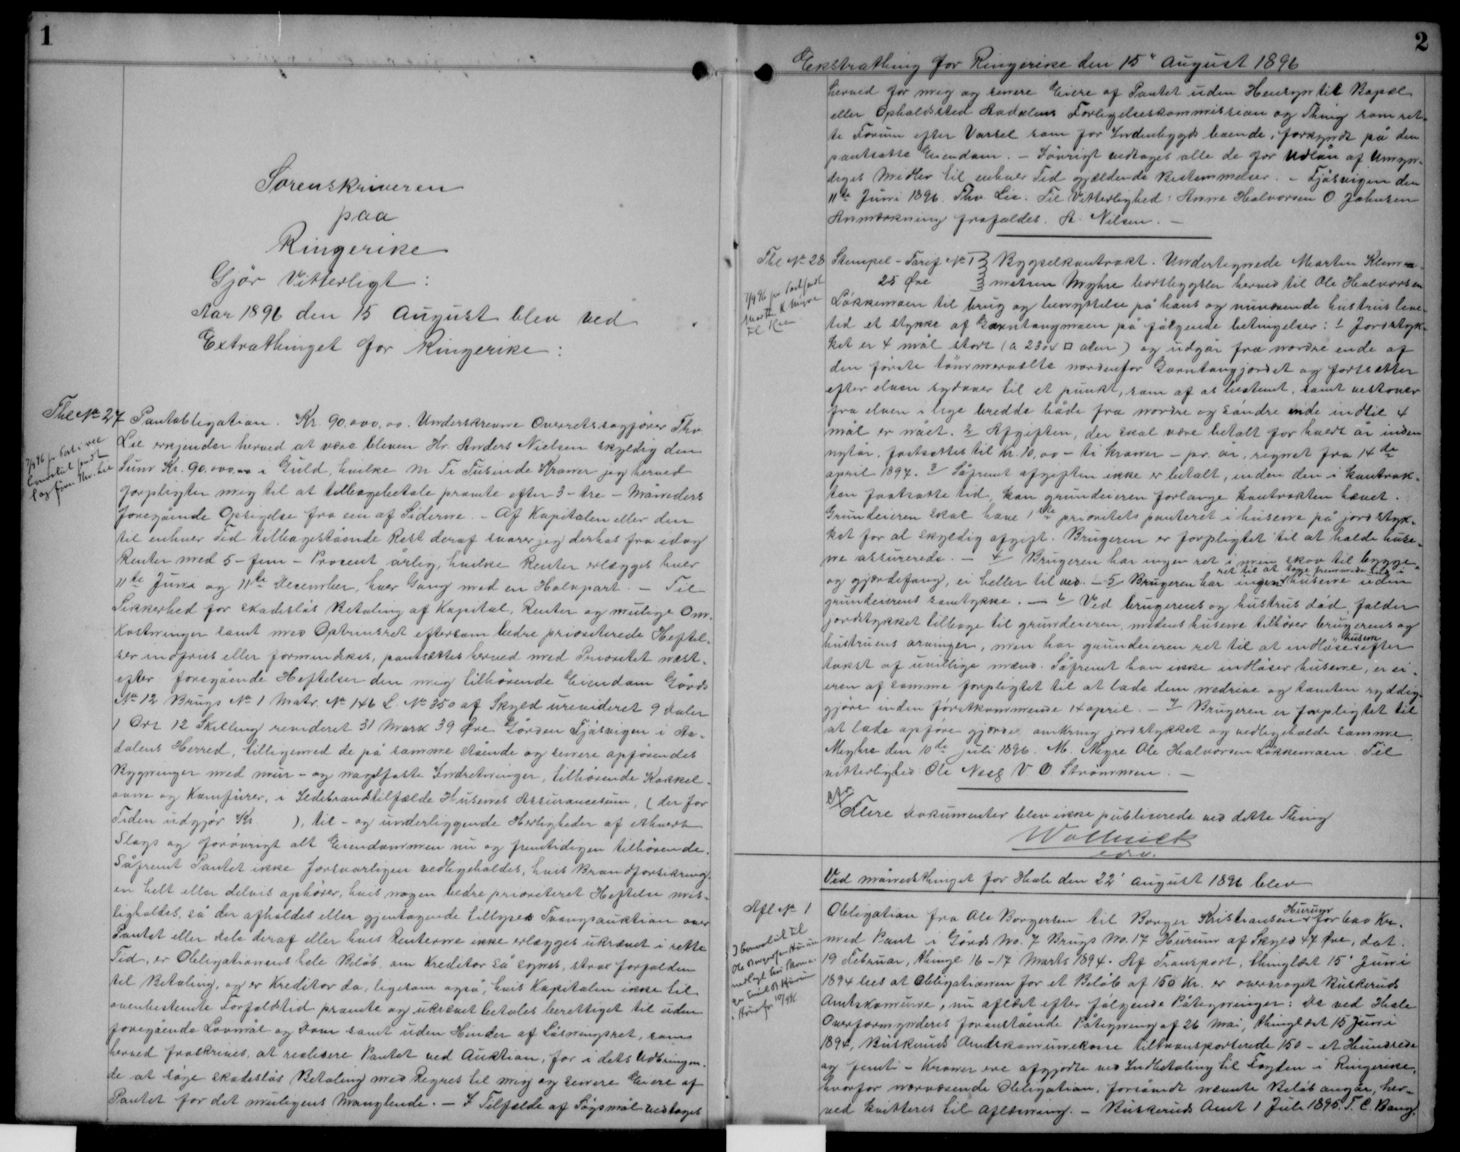 1
Sorenskriveren
paa
Ringerike
Gjør Vitterligt:
Aar 1896 den 15 August blev ved
Extrathinget for Ringerike:
Thl No 27
Pantobligation. Kr. 90.000,00. Underskrevne Overretssagfører Thv.
Lie erkjender herved at være bleven Hr. Anders Nielsen skyldig den
Sum Kr. 90.000,00 i Guld, hvilke Ni Ti Tusinde Kroner jeg herved
forpligter mig til at tilbagebetale promte efter 3 - tre - Maaneders
foregående Opsigelse fra en af Siderne. - Af Kapitalen eller den
til enhver Tid tilbagestående Rest deraf svarer jeg derhos fra idag
Renter med 5 - fem - Procent årlig, hvilke Renter erlægges hver
11te Juni og 11te December, hver Gang med en Halvpart. - Til
Sikkerhed for skadesløs Betaling af Kapital, Renter og mulige Om-
kostninger samt med Optrinsret eftersom bedre prioriterede Heftel-
ser indfries eller formindskes, pantsættes herved med Prioritet næst-
efter foregående Heftelser den mig tilhørende Eiendom Gårds
No 12 Brugs No 1 Matr. No 146 L. No 350 af Skyld urevideret 9 Daler
1 Ort 12 Skilling revideret 31 Mark 39 Øre Gården Tjåsvigen i Aa-
dalens Herred, tilligemed de på samme stående og senere opførendes
Bygninger med mur- og nagelfaste Indretninger, tilhørende Kakkel-
ovne og Komfurer, i Ildebrandstilfælde Husenes Assurancesum, (der for
Tiden udgjør Kr ), til- og underliggende Herligheder af ethvert
Slags og forøvrigt alt Eiendommen nu og fremtidigen tilhørende.
Såfremt Pantet ikke forsvarligen vedligeholdes, hvis Brandforsikring-
en helt eller delvis ophører, hvis nogen bedre prioriteret Heftelse mis-
ligholdes, så der afholdes eller gjentagende tillyses Tvangsauktion over
Pantet eller dele deraf eller hvis Renterne ikke erlægges ukrævet i rette
Tid, er Obligationens hele Beløb, om Kreditor så synes, strax forfalden
til Betaling, og er Kreditor da, ligesom også, hvis Kapitalen ikke til
ovenbestemte Forfaldstid promte og ukrævet betales berettiget til uden
foregående Lovmål og Dom samt uden Hinder af Løsningsret, som
herved fraskrives, at realisere Pantet ved Auktion, for i dets Udbringen-
de at søge skadesløs Betaling med Regres til mig og senere Eiere af
Pantet for det muligens Manglende. - I Tilfælde af Søgsmål vedtages
2
Ekstrathing for Ringerike den 15' August 1896
herved for mig og senere Eiere af Pantet uden Hensyn til Bopæl
eller Opholdssted Aadalens Forligelseskommission og Thing som ret-
te Forum efter Varsel som for Indenbygds boende, forkyndt på den
pantsatte Eiendom. - Iøvrigt vedtages alle de for Udlån af Umyn-
diges Midler til enhver Tid gjældende Bestemmelser. - Tjåsvigen den
11te Juni 1896. Thv Lie. Til Vitterlighed: Anne Halvorsen O. Johnsen
Anmærkning frafaldes. A. Nilsen. -
Thl No 28
Stempel-Taxef No 1 Bygselkontrakt. Undertegnede Morten Klem-
25 Øre metsen Myhre bortbygsler herved til Ole Halvorsen
Løkkemoen til brug og benyttelse på hans og nuværende hustrus leve-
tid et stykke af Garntangmoen på følgende betingelser: 1 Jordstyk-
ket er 4 mål stort (a 2500 □ alen) og udgår fra nordre ende af
den første tømmervælte nordenfor Garntangjordet og fortsetter
efter elven sydover til et punkt, som af os bestemt, samt vestover
fra elven i lige bredde både fra nordre og søndre ende indtil 4
mål er nået. 2 Afgiften, der skal være betalt for hvert år inden
nytår, fastsættes til Kr. 10,00 - ti kroner - pr. år, regnet fra 14de
april 1894. 3 Såfremt afgiften ikke er betalt, inden den i kontrak-
ten fastsatte tid, kan grundeieren forlange kontrakten hævet.
Grundeieren skal have 1ste prioritets panteret i husene på jordstyk-
ket for al skyldig afgift. Brugeren er forpligtet til at holde huse-
ne assurerede. - 4 Brugeren har ingen ret i min skov til bygge-
og gjærdefang, ei heller til ved. - 5 Brugeren har ingen ret til at tage fremmede folk i husene uden
grundeierens samtykke. - 6 Ved brugerens og hustrus død, falder
jordstykket tilbage til grundeieren, medens husene tilhører brugerens og
hustruens arvinger, men har grundeieren ret til at indløse husene efter
takst af uvillige mænd. Såfremt han ikke indløser husene, er ei-
eren af samme forpligtet til at lade dem nedrive og tomten ryddig-
gjøre inden førstkommende 14 april. - 7 Brugeren er forpligtet til
at lade opføre gjærde omkring jordstykket og vedligeholde samme.
Myhre den 10de juli 1896. M. Myre Ole Halvorsen Løkkemoen. Til
vitterlighed Ole Næss V O Strømmen. -
Flere dokumenter blev ikke publicerede ved dette Thing
Ved månedsthinget for Hole den 22' August 1896 blev
Afl No 1
Obligation fra Ole Borgersen til Borger Kristiansen Hurum for 600 Kr.
med Pant i Gårds No. 7 Brugs No. 17 Hurum af Skyld 47 Øre, dat.
19 Februar, thingl 16-17 Marts 1894. Af Transport, thinglæst 15' Juni
1894 sees at Obligationen for et Beløb af 150 Kr. er overdraget Buskeruds
Amtskomune, nu aflæst efter følgende Påtegninger: De ved Hole
Overformynderis foranstående Påtegning af 26 Mai, thinglæst 15 Juni
1894, Buskeruds Amtskommunekasse tiltransporterede 150 - et Hundrede
og femti - Kroner ere afgjorte ved Indbetaling til Fogden i Ringerike,
hvorfor nærværende Obligation, forsåvidt nævnte Beløb angår, her-
ved kvitteres til Aflæsning. - Buskeruds Amt 1 Juli 1895. T. C. Bang.